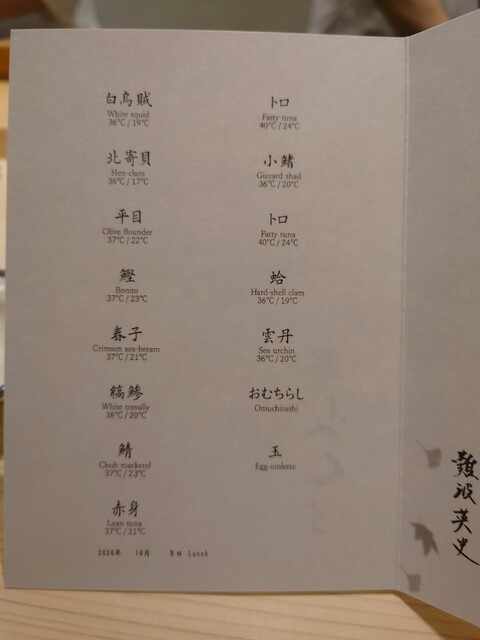 白烏賊
White squid
36℃ / 19℃
北寄貝
Hen-clam
36℃ / 17℃
平目
Olive flounder
37℃ / 22℃
鰹
Bonito
37℃ / 23℃
春子
Crimson sea-bream
37℃ / 21℃
縞鯵
White trevally
38℃ / 20℃
鯖
Chub mackerel
37℃ / 23℃
赤身
Lean tuna
37℃ / 21℃
トロ
Fatty tuna
40℃ / 24℃
小鰭
Gizzard shad
36℃ / 20℃
トロ
Fatty tuna
40℃ / 24℃
蛤
Hard-shell clam
36℃ / 19℃
雲丹
Sea urchin
36℃ / 20℃
おむちらし
Omuchirashi
玉
Egg-omlette
2020年 10月 Lunch
難波英史